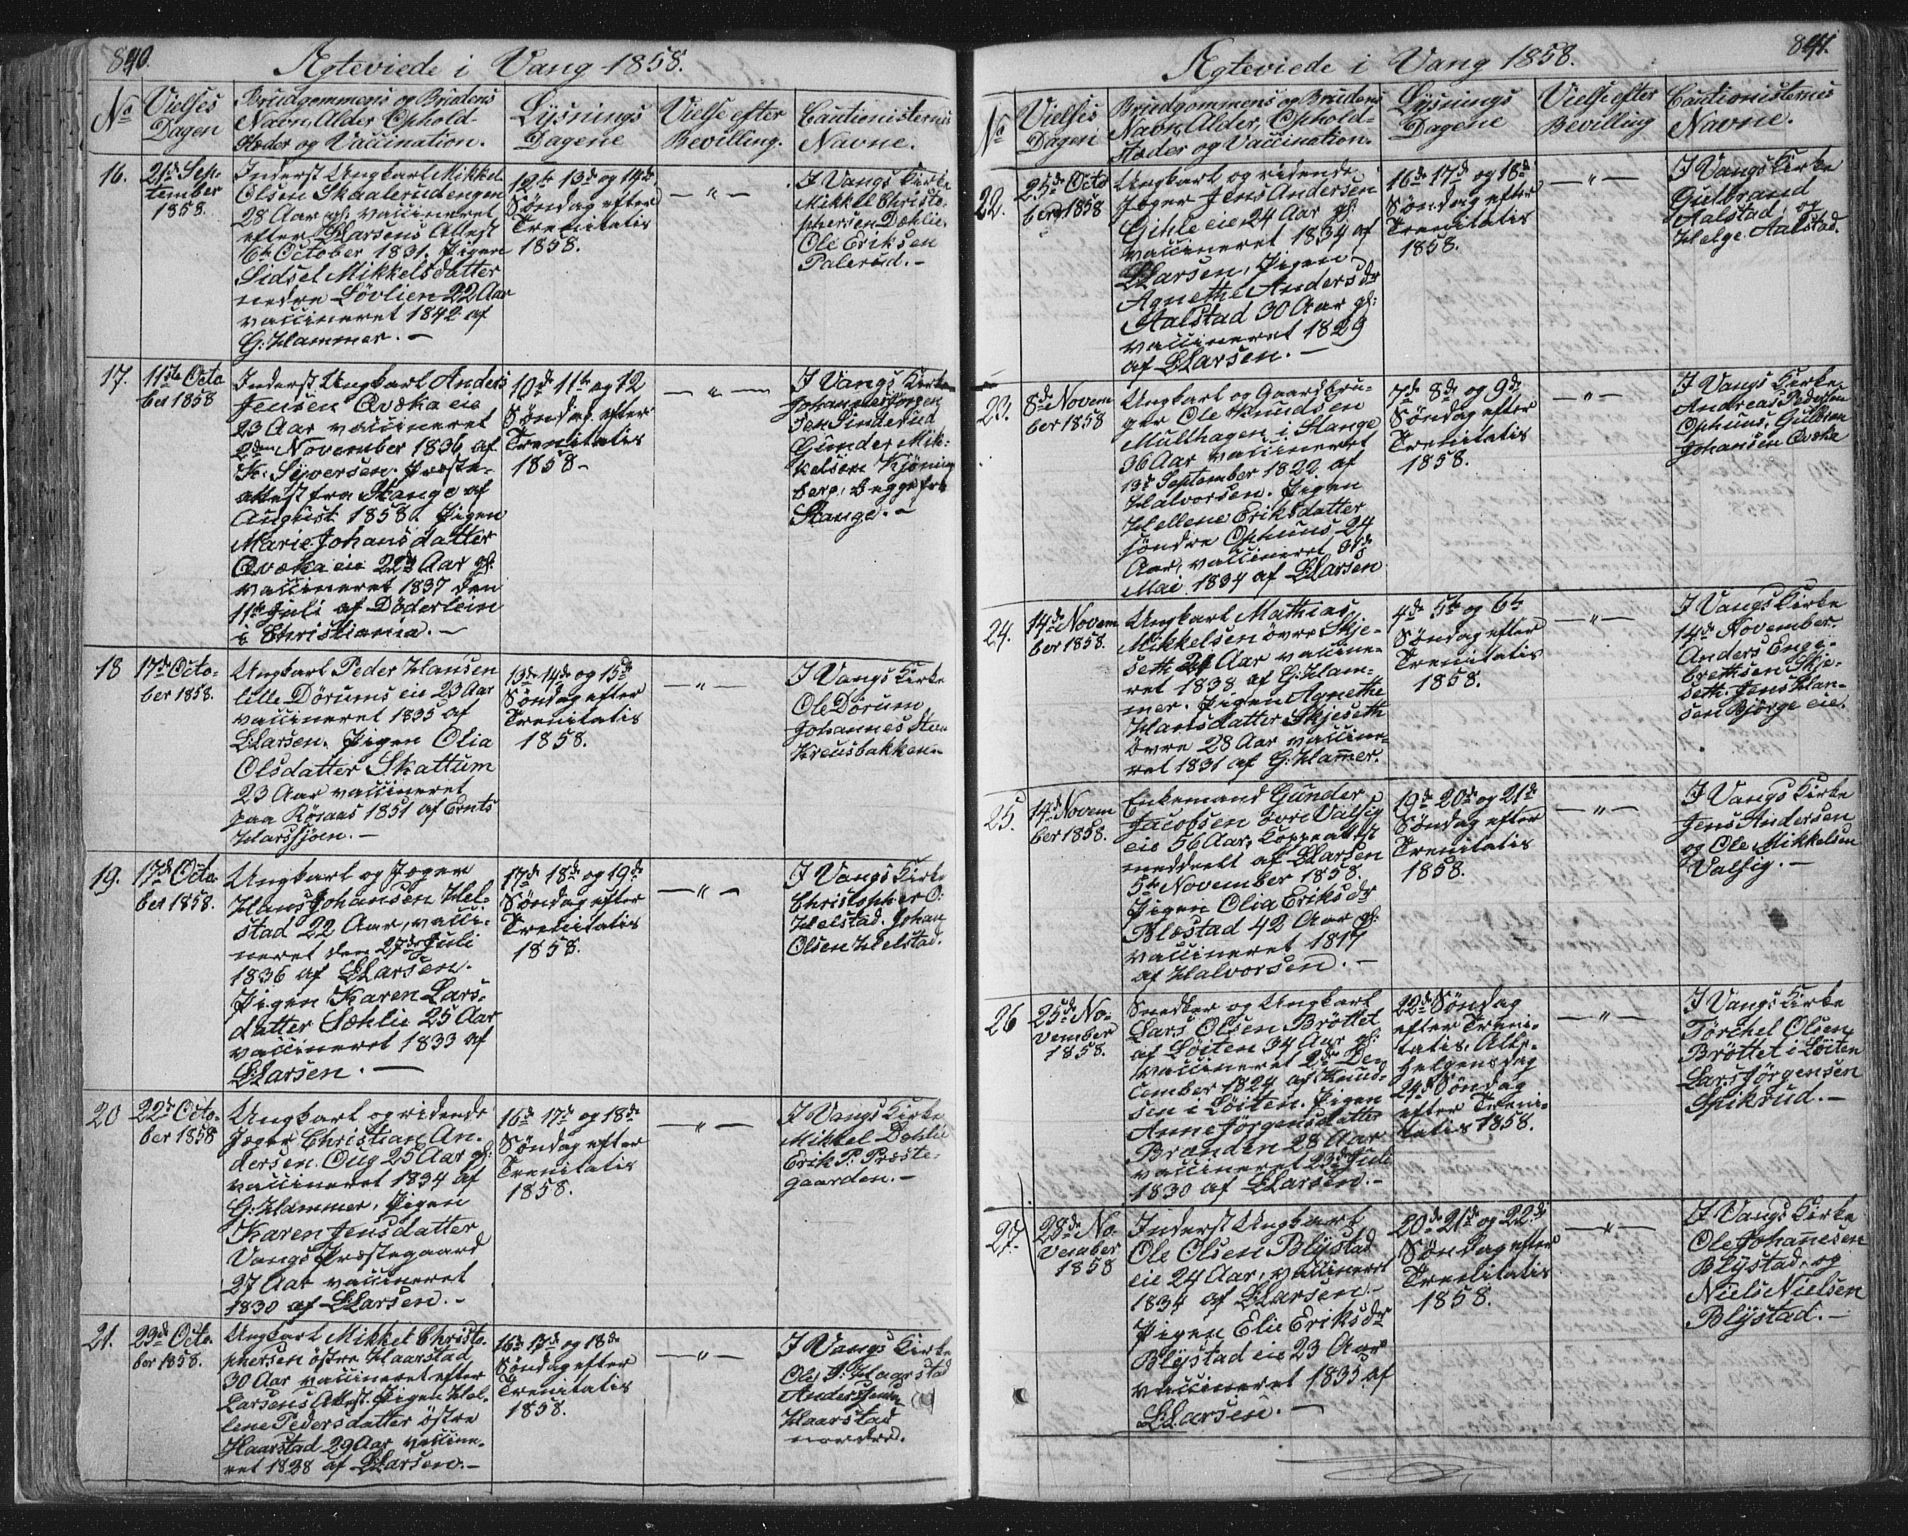 840.
Ægteviede i Vang 1858.
No
Vielses Dagen
Brudgommens og Brudens
Navn, Alder, Ophold-
Stæder og Vaccination.
Lysnings Dagene
Vielse efter Bevilling.
Cautionisternes Navne.
16.
21de Sep-
tember
1858.
Inderst Ungkarl Mikkel
Olsen Skaalerudengen
28 Aar gl. vaccineret
efter Larsens Attest
6te October 1831. Pigen
Sidsel Mikkelsdatter
nedre Løvlien 22 Aar
vaccineret 1842 af
G. Hammer. —
12te 13de og 14de
Søndag efter
Trenitatis
1858.
— " —
I Vangs Kirke
Mikkel Christo-
phersen Dæhlie.
Ole Eriksen
Palerud. —
17.
11te Octo
ber 1858
Inderst Ungkarl Anders
Jensen Qvæka eie
23 Aar vaccineret
2den November 1836 af
K. Syversen. Præste-
attest fra Stange af
August 1858. Pigen
Marie Johansdatter
Qvæka eie 22 Aar gl.
vaccineret 1837 den
11te Juli af Døderlein
i Christiania. —
10de 11te og 12
Søndag efter
Trenitatis
1858 —
— " —
I Vangs Kirke
Johannes Jørgen
sen Sinderud
Gunder Mik-
kelsen Kjöning
berg, begge fra
Stange. —
18
17de Octo-
ber 1858.
Ungkarl Peder Hansen
lille Dörums eie 23 Aar
vaccineret 1835 af
L. Larsen. Pigen Olia
Olsdatter Skattum
23 Aar vaccineret
paa Röraas 1851 af Ernts
Harssjøen. —
13de 14de og 15de
Søndag efter
Trenitatis
1858.
— " —
I Vangs Kirke
Ole Dörum
Johannes
Kreusbakken
19.
17de Octo-
ber 1858.
Ungkarl og Jæger
Hans Johansen Hel-
stad 22 Aar, vacci-
neret den 27de Juli
1836 af L. Larsen.
Pigen Karen Lars-
datter Sæhlie 25 Aar
vaccineret 1833 af
L. Larsen. —
17de 18de og 19de
Søndag efter
Trenitatis
1858.
— " —
I Vangs Kirke
Christopher O.
Helstad. Johan
Olsen Helstad.
20
22de Octo-
ber 1858
Ungkarl og ridende
Jæger Christian An-
dersen Oug 25 Aar gl.
vaccineret 1834 af
G. Hammer. Pigen
Karen Jensdatter
Vangs Præstegaard
27 Aar vaccineret
1830 af L. Larsen. —
16de 17de og 18de
Søndag efter
Trenitatis
1858.
— " —
I Vangs Kirke
Mikkel Dæhlie
Erik P. Præste-
gaarden. —
21.
23de Octo-
ber 1858.
Ungkarl Mikkel Christo-
phersen østre Haarstad
30 Aar vaccineret efter
Larsens Attest. Pigen Hel-
lene Pedersdatter østre
Haarstad 29 Aar vaccine-
ret 1838 af L. Larsen. —
16de 17de og 18de
Søndag efter
Trenitatis
1858.
— " —
I Vangs Kirke
Ole P. Haarstad
Anders Jensen
Haarstad
nordre.
841.
Ægteviede i Vang 1858.
No
Vielses Dagen
Brudgommens og Brudens
Navn, Alder, Ophold-
Stæder og Vaccination.
Lysnings Dagene
Vielse efter Bevilling
Cautionisternes Navne.
22.
25de Octo
ber 1858
Ungkarl og ridende
Jæger Jens Andersen
Gihle eie 24 Aar gl.
vaccineret 1834 af
L. Larsen, Pigen
Agnethe Andersdr
Aalstad 30 Aar gl:
vaccineret 1829
af L. Larsen. —
16de 17de og 18de
Søndag efter
Trenitatis
1858.
— " —
I Vangs Kirke
Gulbrand
Aalstad, og
Helge Aalstad.
23.
8de Novem
ber 1858
Ungkarl og Gaardbru-
ger Ole Knudsen
Multhagen i Stange
36 Aar vaccineret
13de September 1822 af
Halvorsen. Pigen
Hellene Eriksdatter
søndre Ophuus 24
Aar, vaccineret
Mai 1834 af L. Larsen
7de 8de og 9de
Søndag efter
Trenitatis
1858.
— " —
I Vangs Kirke
Andreas Pedersen
Ophuus, Gulbran
Johansen Qvæka
24.
14de Novem
ber 1858.
Ungkarl Mathias
Mikkelsen övre Skje-
seth 24 Aar vaccine-
ret 1838 af G. Ham-
mer. Pigen Agnethe
Hansdatter Skjeseth
övre 28 Aar vaccine-
ret 1831 af G. Hammer.
4de 5te og 6te
Søndag efter
Trenitatis
1858.
— " —
I Vangs Kirke
14de November.
Anders Enge-
brethsen Skje-
seth. Jens Han-
sen Bjørge eie.
25.
14de Novem
ber 1858.
Enkemand Gunder
Jacobsen övre Valsig
eie 56 Aar, Koppeattest
meddeelt af L. Larsen
5te November 1858.
Pigen Olia Eriksdr
Blæstad 42 Aar gl.
vaccineret 1817
af Halvorsen. —
19de 20de og 21de
Søndag efter
Trenitatis
1858.
— " —
I Vangs Kirke
Jens Andersen
og Ole Mikkelsen
Valsig. —
26
25de No-
vember
1858.
Snedker og Ungkarl
Lars Olsen Bröttet
af Löiten 34 Aar gl:
vaccineret 28de De
cember 1824 af Knud-
sen i Löiten. Pigen
Anne Jörgensdatter
Branden 28 Aar
vaccineret 23de Juli
1830 af L. Larsen. —
22de Søndag
efter Treni-
tatis, Alle-
helgensdag
24de Søndag
efter Treni-
tatis 1858.
— " —
I Vangs Kirke
Törchel Olsen
Bröttet i Löiten
Lars Jörgensen
Spikrud. —
27.
28de No
vember
1858
Inderst Ungkarl
Ole Olsen Blystad
eie 24 Aar, vaccineret
1834 af L. Larsen. —
Pigen Elie Eriksdr
Blystad eie 23 Aar
vaccineret 1835 af
L. Larsen. —
20de 21de og 22de
Søndag efter
Trenitatis
1858.
— " —
I Vangs Kirke
Ole Johannesen
Blystad, og
Niels Nielsen
Blystad. —